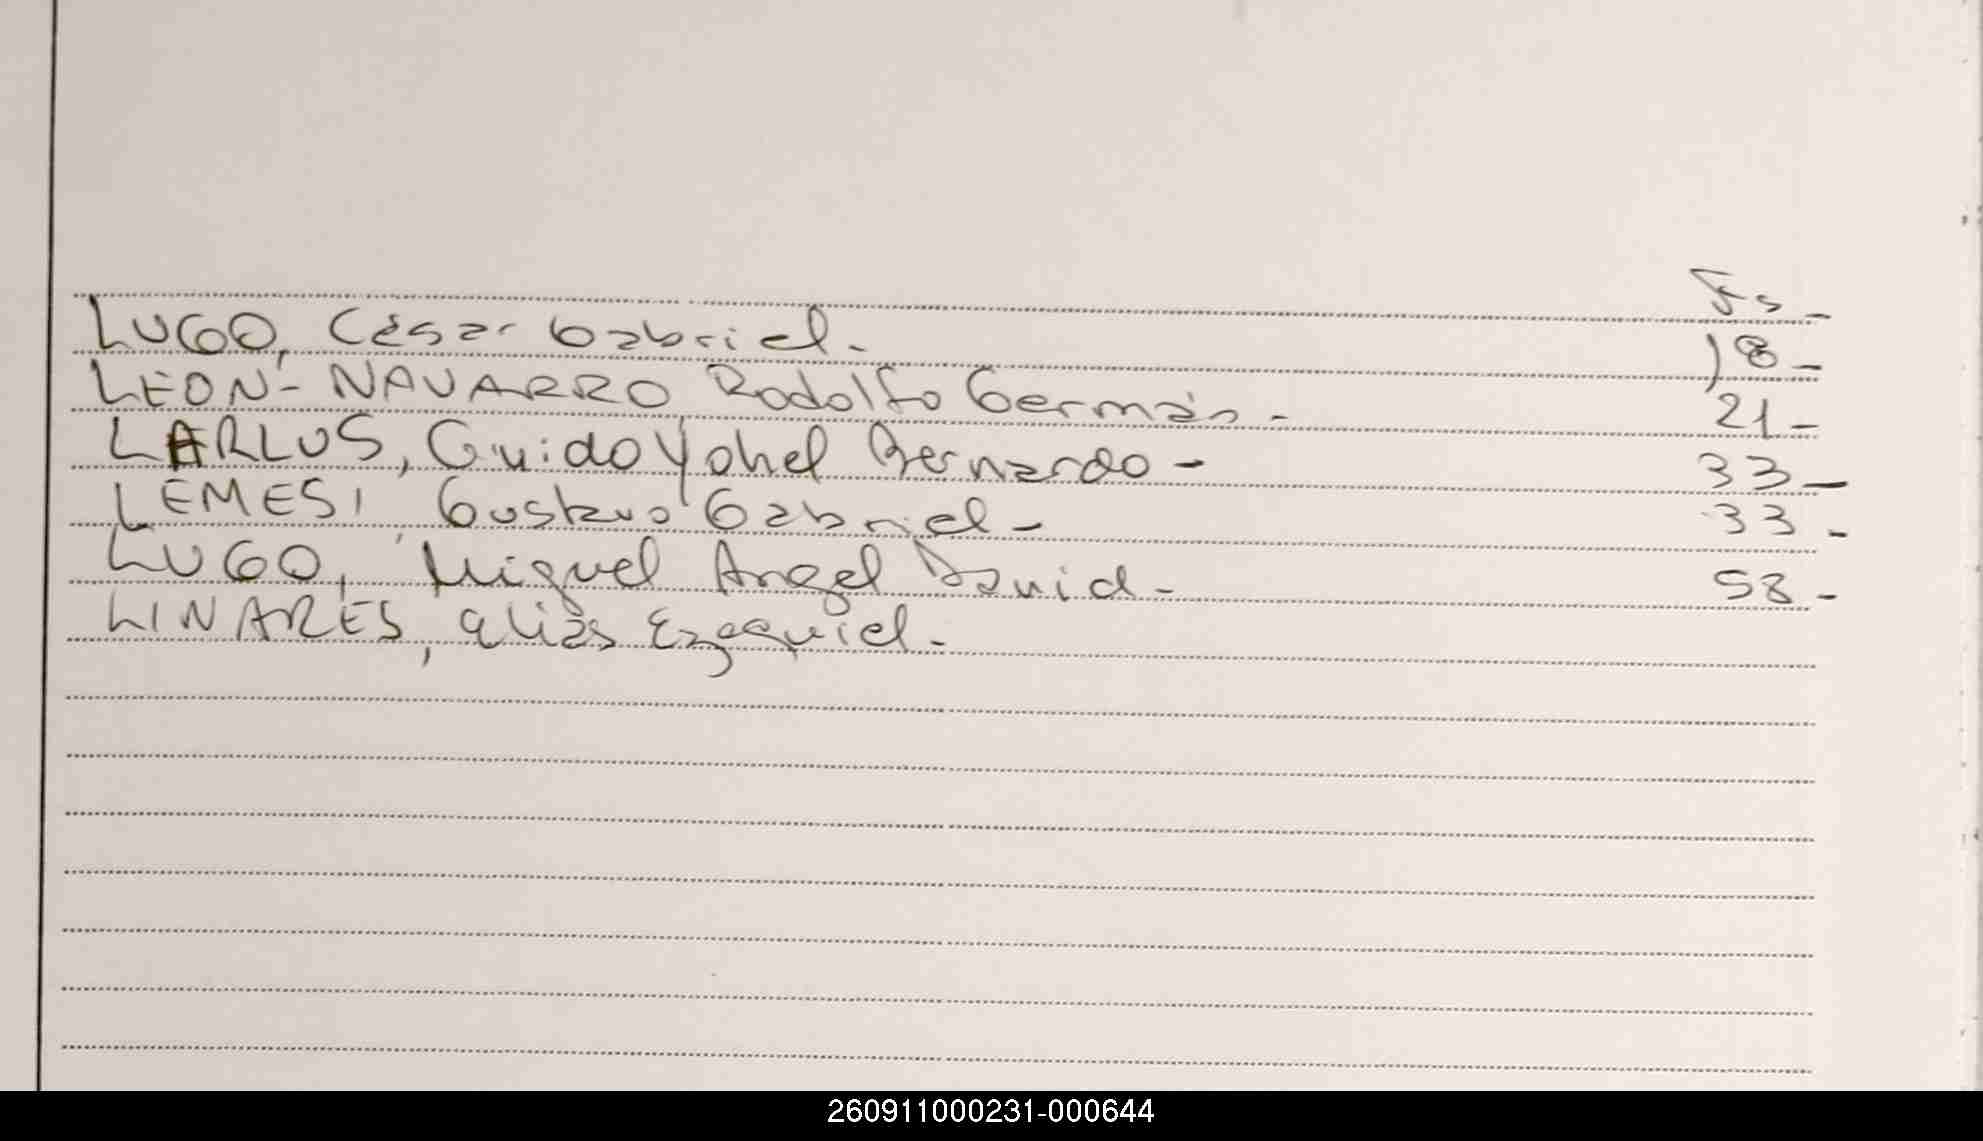 Fs-
LUGO, César Gabriel. 18-
LEON-NAVARRO Rodolfo Germán. 21-
LARLUS, Guido Yohel Bernardo- 33-
LEMES, Gustavo Gabriel- 33-
LUGO, Miguel Angel David- 58-
LINARES, alias Ezequiel.
260911000231-000644